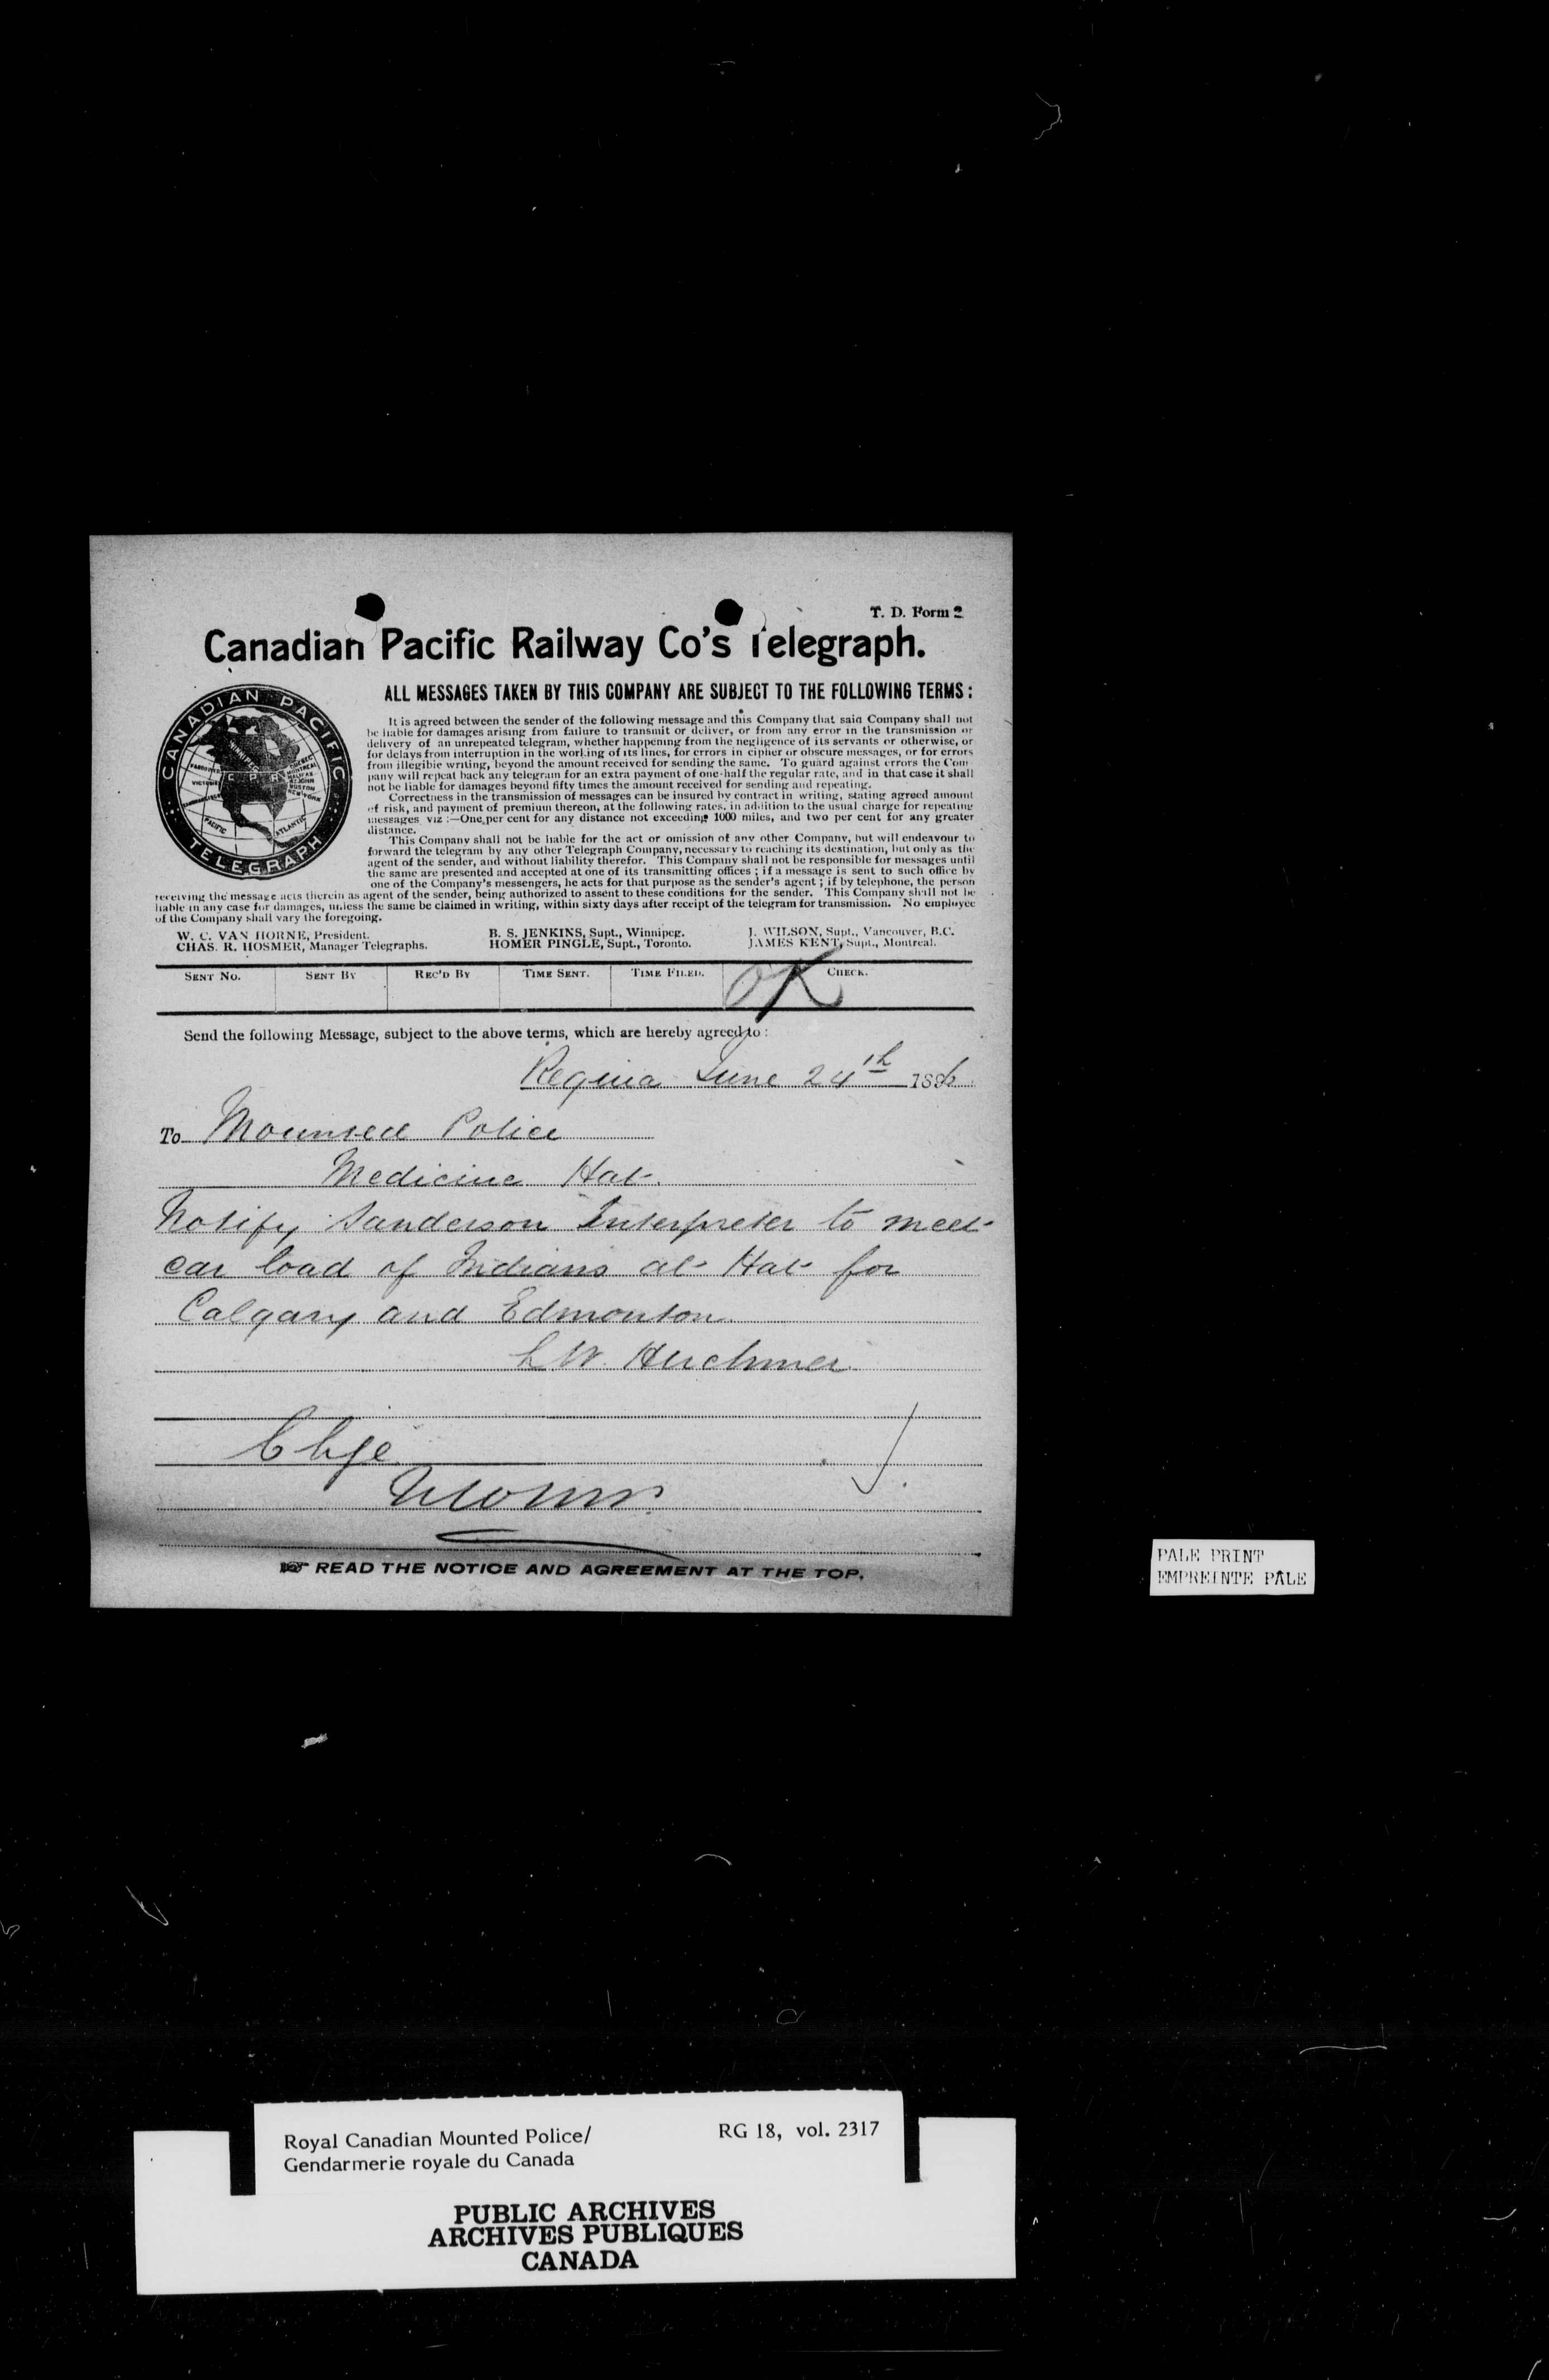 T. D. Form 2
Canadian Pacific Railway Co's Telegraph.
ALL MESSAGES TAKEN BY THIS COMPANY ARE SUBJECT TO THE FOLLOWING TERMS:
CANADIAN PACIFIC
TELEGRAPH
WINNIPEG
C. P. R.
QUEBEC
MONTREAL
HALIFAX
ST. JOHN
BOSTON
NEW YORK
VANCOUVER
VICTORIA
PACIFIC
ATLANTIC
It is agreed between the sender of the following message and this Company that said Company shall not
be liable for damages arising from failure to transmit or deliver, or from any error in the transmission or
delivery of an unrepeated telegram, whether happening from the negligence of its servants or otherwise, or
for delays from interruption in the working of its lines, for errors in cipher or obscure messages, or for errors
from illegible writing, beyond the amount received for sending the same. To guard against errors the Com-
pany will repeat back any telegram for an extra payment of one-half the regular rate, and in that case it shall
not be liable for damages beyond fifty times the amount received for sending and repeating.
Correctness in the transmission of messages can be insured by contract in writing, stating agreed amount
of risk, and payment of premium thereon, at the following rates, in addition to the usual charge for repeating
messages viz :—One per cent for any distance not exceeding 1000 miles, and two per cent for any greater
distance.
This Company shall not be liable for the act or omission of any other Company, but will endeavour to
forward the telegram by any other Telegraph Company, necessary to reaching its destination, but only as the
agent of the sender, and without liability therefor. This Company shall not be responsible for messages until
the same are presented and accepted at one of its transmitting offices ; if a message is sent to such office by
one of the Company's messengers, he acts for that purpose as the sender's agent ; if by telephone, the person
receiving the message acts therein as agent of the sender, being authorized to assent to these conditions for the sender. This Company shall not be
liable in any case for damages, unless the same be claimed in writing, within sixty days after receipt of the telegram for transmission. No employee
of the Company shall vary the foregoing.
W. C. VAN HORNE, President. B. S. JENKINS, Supt., Winnipeg. J. WILSON, Supt., Vancouver, B.C.
CHAS. R. HOSMER, Manager Telegraphs. HOMER PINGLE, Supt., Toronto. JAMES KENT, Supt., Montreal.
SENT NO. SENT BY REC'D BY TIME SENT. TIME FILED. CHECK.
OK
Send the following Message, subject to the above terms, which are hereby agreed to :
Regina June 24th 1896
To Mounted Police
Medicine Hat.
Notify Sanderson Interpreter to meet
car load of Indians at Hat for
Calgary and Edmonton.
L W. Herchmer.
Chge
READ THE NOTICE AND AGREEMENT AT THE TOP.
PALE PRINT
EMPREINTE PÂLE
Royal Canadian Mounted Police/ RG 18, vol. 2317
Gendarmerie royale du Canada
PUBLIC ARCHIVES
ARCHIVES PUBLIQUES
CANADA